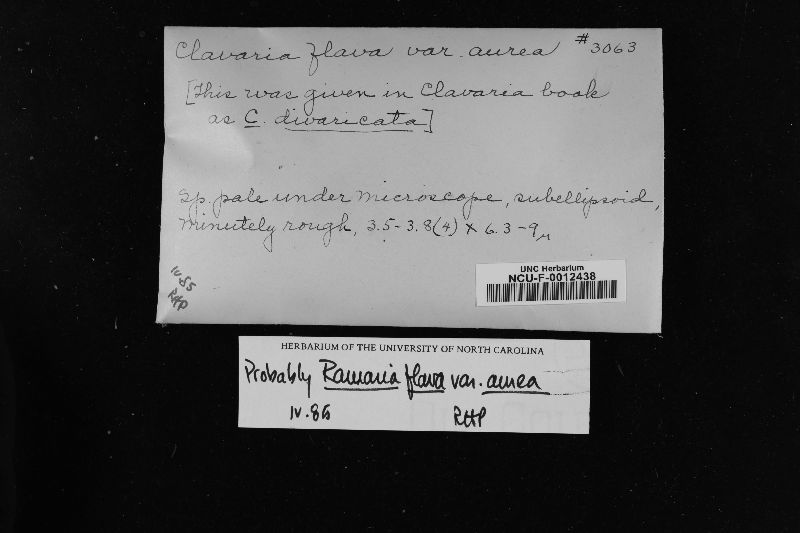 Clavaria flava var. aurea #3063
[This was given in Clavaria book
as C. divaricata]
Sp. pale under microscope, subellipsoid,
minutely rough, 3.5-3.8(4) x 6.3-9μ
IV.85
RHP
UNC Herbarium
NCU-F-0012438
HERBARIUM OF THE UNIVERSITY OF NORTH CAROLINA
Probably Ramaria flava var. aurea
IV.85 RHP